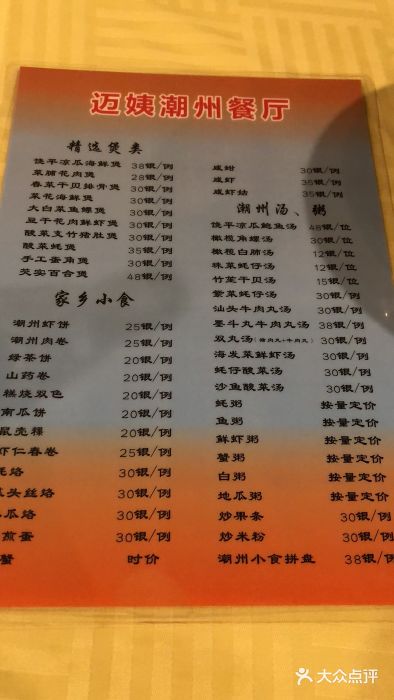 迈姨潮州餐厅
精选煲类
饶平凉瓜海鲜煲 38银/例
菜脯花肉煲 28银/例
春菜干贝排骨煲 30银/例
菜花海鲜煲 30银/例
大白菜鱼螺煲 30银/例
豆干花肉鲜虾煲 30银/例
酸菜支竹猪肚煲 30银/例
酸菜蚝煲 35银/例
手工蛋角煲 30银/例
芡实百合煲 48银/例
家乡小食
潮州虾饼 25银/例
潮州肉卷 25银/例
绿茶饼 20银/例
山药卷 20银/例
糕烧双色 20银/例
南瓜饼 20银/例
鼠壳粿 20银/例
虾仁春卷 25银/例
蚝烙 30银/例
头丝烙 30银/例
瓜烙 30银/例
煎蛋 30银/例
蟹 时价
咸蚶 30银/例
咸虾 35银/例
咸虾姑 30银/例
潮州汤、粥
饶平凉瓜鲍鱼汤 48银/位
橄榄角螺汤 30银/位
橄榄白肺汤 12银/位
珠菜蚝仔汤 12银/位
竹笙干贝汤 15银/位
紫菜蚝仔汤 30银/例
汕头牛肉丸汤 30银/例
墨斗丸牛肉丸汤 38银/例
双丸汤(猪肉丸+牛肉丸) 30银/例
海发菜鲜虾汤 30银/例
蚝仔酸菜汤 30银/例
沙鱼酸菜汤 30银/例
蚝粥 按量定价
鱼粥 按量定价
鲜虾粥 按量定价
蟹粥 按量定价
白粥 按量定价
地瓜粥 按量定价
炒果条 30银/例
炒米粉 30银/例
潮州小食拼盘 38银/例
大众点评